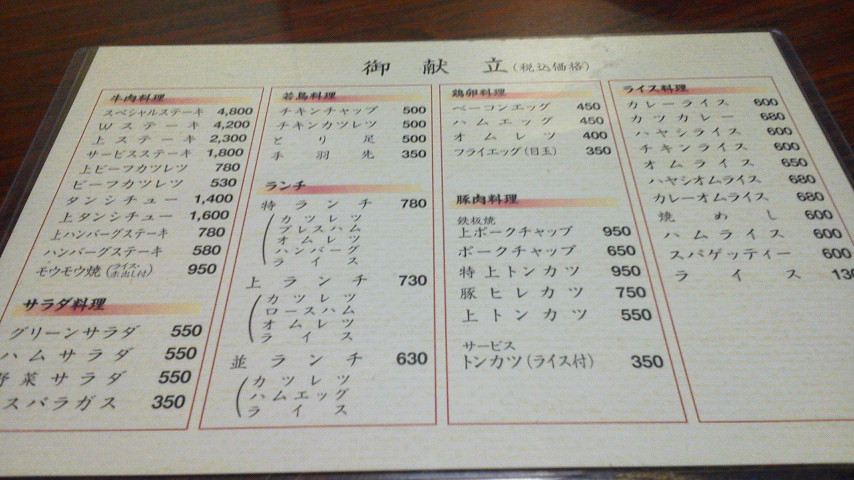 御献立(税込価格)
牛肉料理
スペシャルステーキ 4,800
Wステーキ 4,200
上ステーキ 2,300
サービスステーキ 1,800
上ビーフカツレツ 780
ビーフカツレツ 530
タンシチュー 1,400
上タンシチュー 1,600
上ハンバーグステーキ 780
ハンバーグステーキ 580
モウモウ焼(ライス・赤出し付) 950
サラダ料理
グリーンサラダ 550
ハムサラダ 550
野菜サラダ 550
スパラガス 350
若鳥料理
チキンチャップ 500
チキンカツレツ 500
とり足 500
手羽先 350
ランチ
特ランチ 780
カツレツ
プレスハム
オムレツ
ハンバーグ
ライス
上ランチ 730
カツレツ
ロースハム
オムレツ
ライス
並ランチ 630
カツレツ
ハムエッグ
ライス
鶏卵料理
ベーコンエッグ 450
ハムエッグ 450
オムレツ 400
フライエッグ(目玉) 350
豚肉料理
鉄板焼
上ポークチャップ 950
ポークチャップ 650
特上トンカツ 950
豚ヒレカツ 750
上トンカツ 550
サービス
トンカツ(ライス付) 350
ライス料理
カレーライス 600
カツカレー 680
ハヤシライス 600
チキンライス 600
オムライス 650
ハヤシオムライス 680
カレーオムライス 680
焼めし 600
ハムライス 600
スパゲッティー 600
ライス 130